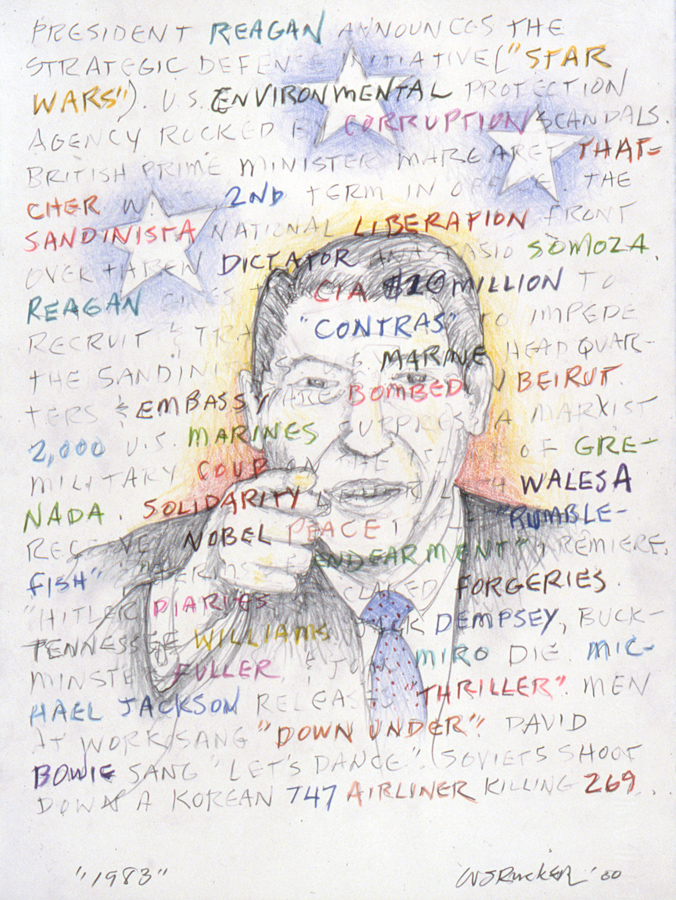 PRESIDENT REAGAN ANNOUNCES THE
STRATEGIC DEFENSE INITIATIVE ("STAR
WARS"). U.S. ENVIRONMENTAL PROTECTION
AGENCY ROCKED BY CORRUPTION SCANDALS.
BRITISH PRIME MINISTER MARGARET THAT-
CHER 2ND TERM IN OFFICE. THE
SANDINISTA NATIONAL LIBERATION FRONT
DICTATOR SOMOZA.
REAGAN GIVES CIA $20 MILLION TO
RECRUIT & "CONTRAS" TO IMPEDE
THE SANDINI MARINE HEADQUAR-
TERS & EMBASSY ARE BOMBED IN BEIRUT.
2,000 U.S. MARINES SUPPRESS A MARXIST
MILITARY COUP ON THE OF GRE-
NADA. SOLIDARITY LEADER WALESA
NOBEL PEACE "RUMBLE-
FISH" ENDEARMENT" PREMIERE.
"HITLER DIARIES FORGERIES.
TENNESSEE WILLIAMS JACK DEMPSEY, BUCK-
MINSTE FULLER, & MIRO DIE. MIC-
HAEL JACKSON RELEASES "THRILLER". MEN
AT WORK SANG "DOWN UNDER". DAVID
BOWIE SANG "LET'S DANCE". SOVIETS SHOOT
DOWN A KOREAN 747 AIRLINER KILLING 269.
"1983" WJRUCKER '00